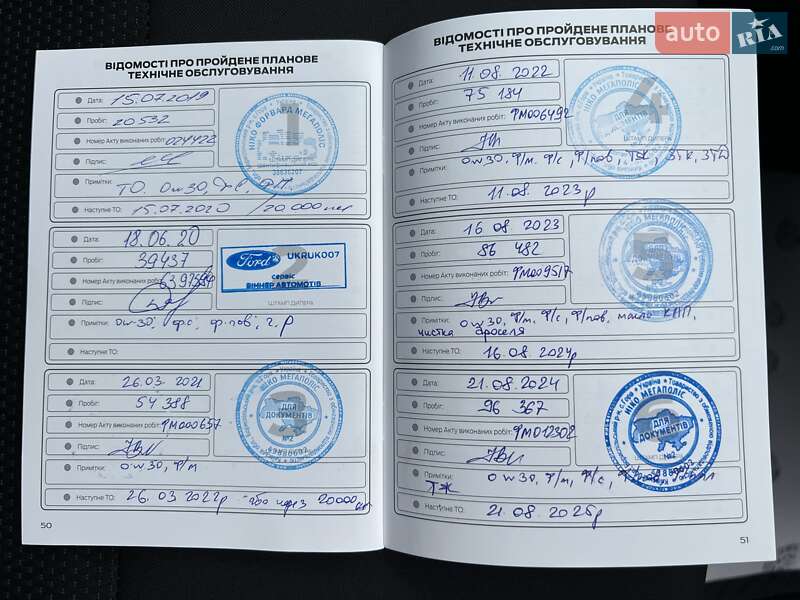 ВІДОМОСТІ ПРО ПРОЙДЕНЕ ПЛАНОВЕ
ТЕХНІЧНЕ ОБСЛУГОВУВАННЯ
Дата: 15.07.2019
Пробіг: 20532
Номер Акту виконаних робіт: 024422
Підпис:
Примітки:
ТО. 0w30,
Наступне ТО: 15.07.2020 / 20.000 км
1
НІКО ФОРВАРД МЕГАПОЛІС
Дата: 18.06.20
Пробіг: 39437
Номер Акту виконаних робіт:
Підпис:
Примітки: 0w30,
Наступне ТО:
2
Ford UKRUK007
сервіс
ВІННЕР АВТОМОТІВ
ШТАМП ДИЛЕРА
Дата: 26.03 2021
Пробіг: 54 388
Номер Акту виконаних робіт: ФМ000657
Підпис:
Примітки: 0w30, Ф/м
Наступне ТО: 26.03 2022р або через 20000 км
3
НІКО МЕГАПОЛІС
ДЛЯ
ДОКУМЕНТІВ
№2
50
ВІДОМОСТІ ПРО ПРОЙДЕНЕ ПЛАНОВЕ
ТЕХНІЧНЕ ОБСЛУГОВУВАННЯ
Дата: 11.08.2022
Пробіг: 75 184
Номер Акту виконаних робіт: ФМ006492
Підпис:
Примітки: 0w30, Ф/м, Ф/с, Ф/пов, ТЖ,
Наступне ТО: 11.08.2023р
4
НІКО МЕГАПОЛІС
ШТАМП ДИЛЕРА
Дата: 16 08 2023
Пробіг: 86 482
Номер Акту виконаних робіт: ФМ009517
Підпис:
Примітки: 0w30, Ф/м, Ф/с, Ф/пов, масло КПП,
чистка дроселя
Наступне ТО: 16.08.2024р
5
НІКО МЕГАПОЛІС
Дата: 21.08.2024
Пробіг: 96 367
Номер Акту виконаних робіт: ФМ012302
Підпис:
Примітки: 0w30, Ф/м, Ф/с,
ТЖ
Наступне ТО: 21.08.2025р
НІКО МЕГАПОЛІС
ДЛЯ
ДОКУМЕНТІВ
№2
51
auto RIA.com